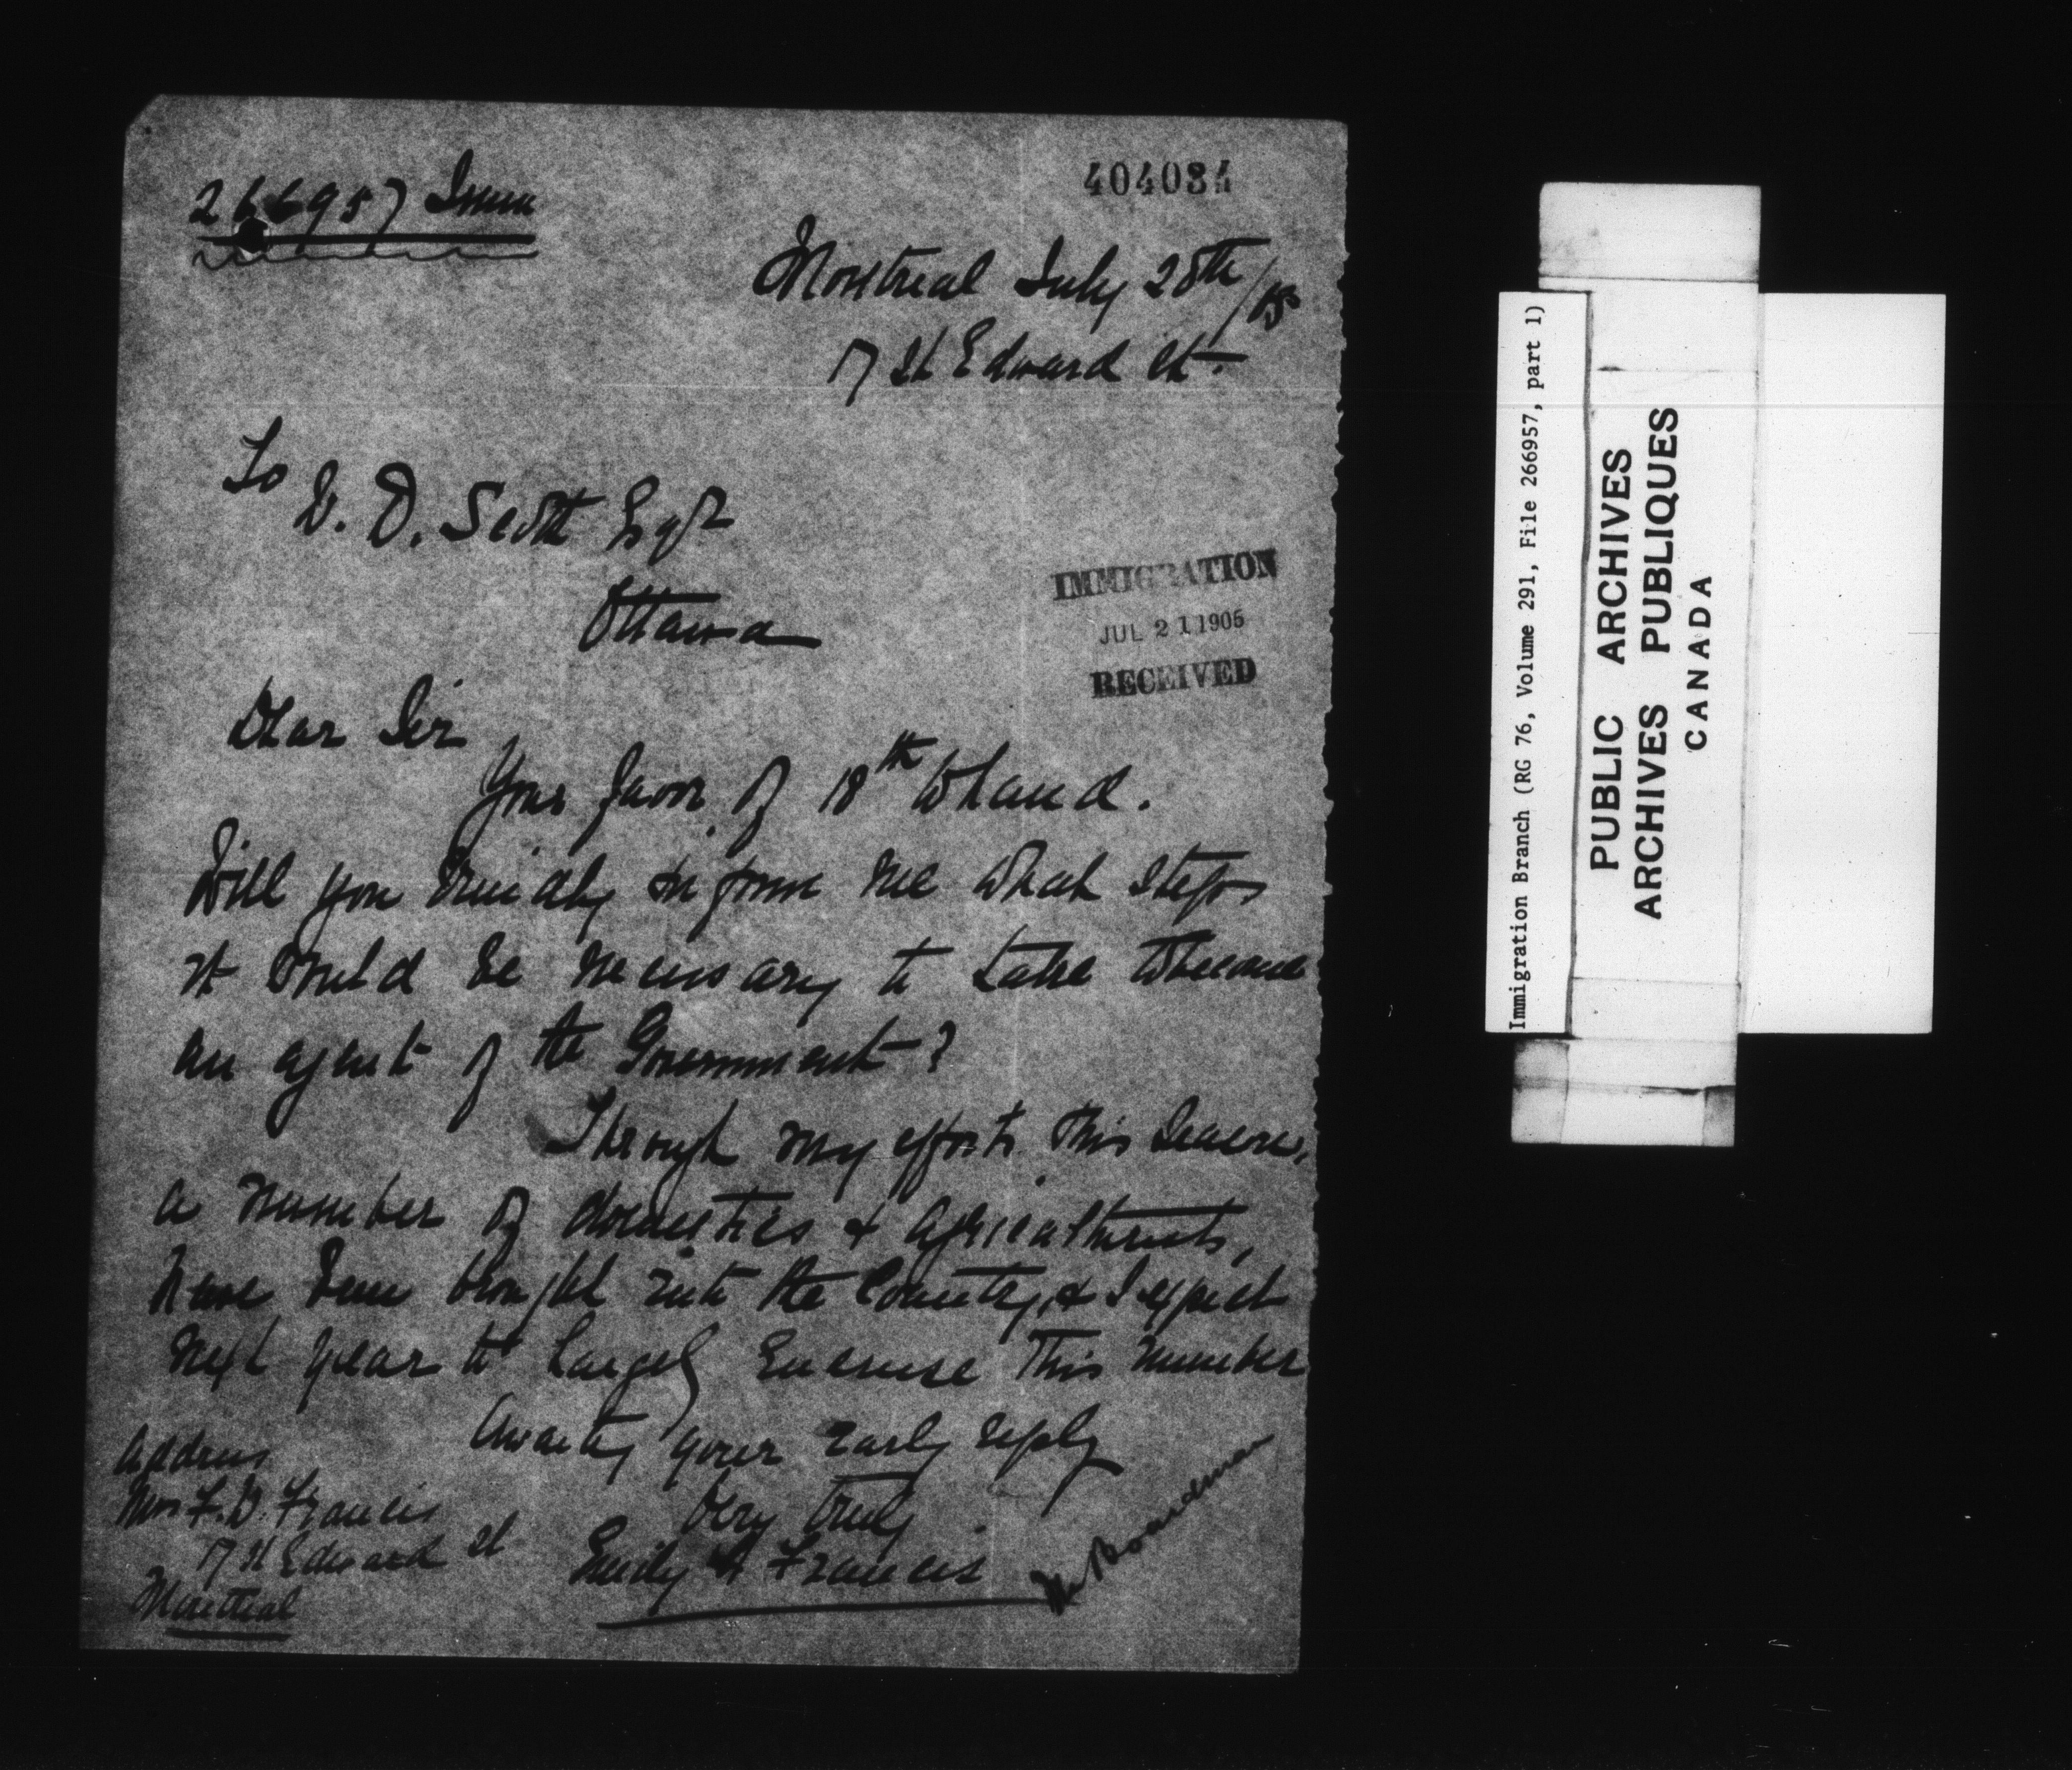 266957 Imm
404034
Montreal July 20th/05
17 St Edward St.
To
W. D. Scott Esqr
Ottawa
IMMIGRATION
JUL 21 1905
RECEIVED
Dear Sir
Your favor of 18th to hand.
Will you kindly inform me what steps
it would be necessary to take to become
an agent of the Government?
Through my efforts this season,
a number of domestics & agriculturists,
have been brought into the Country, & I expect
next year to largely increase this number
Awaiting your early reply
Very truly
Emily A Francis
Address
Mrs F. D. Francis
17 St Edward St
Montreal
Mr Boardman
Immigration Branch (RG 76, Volume 291, File 266957, part 1)
PUBLIC ARCHIVES
ARCHIVES PUBLIQUES
CANADA